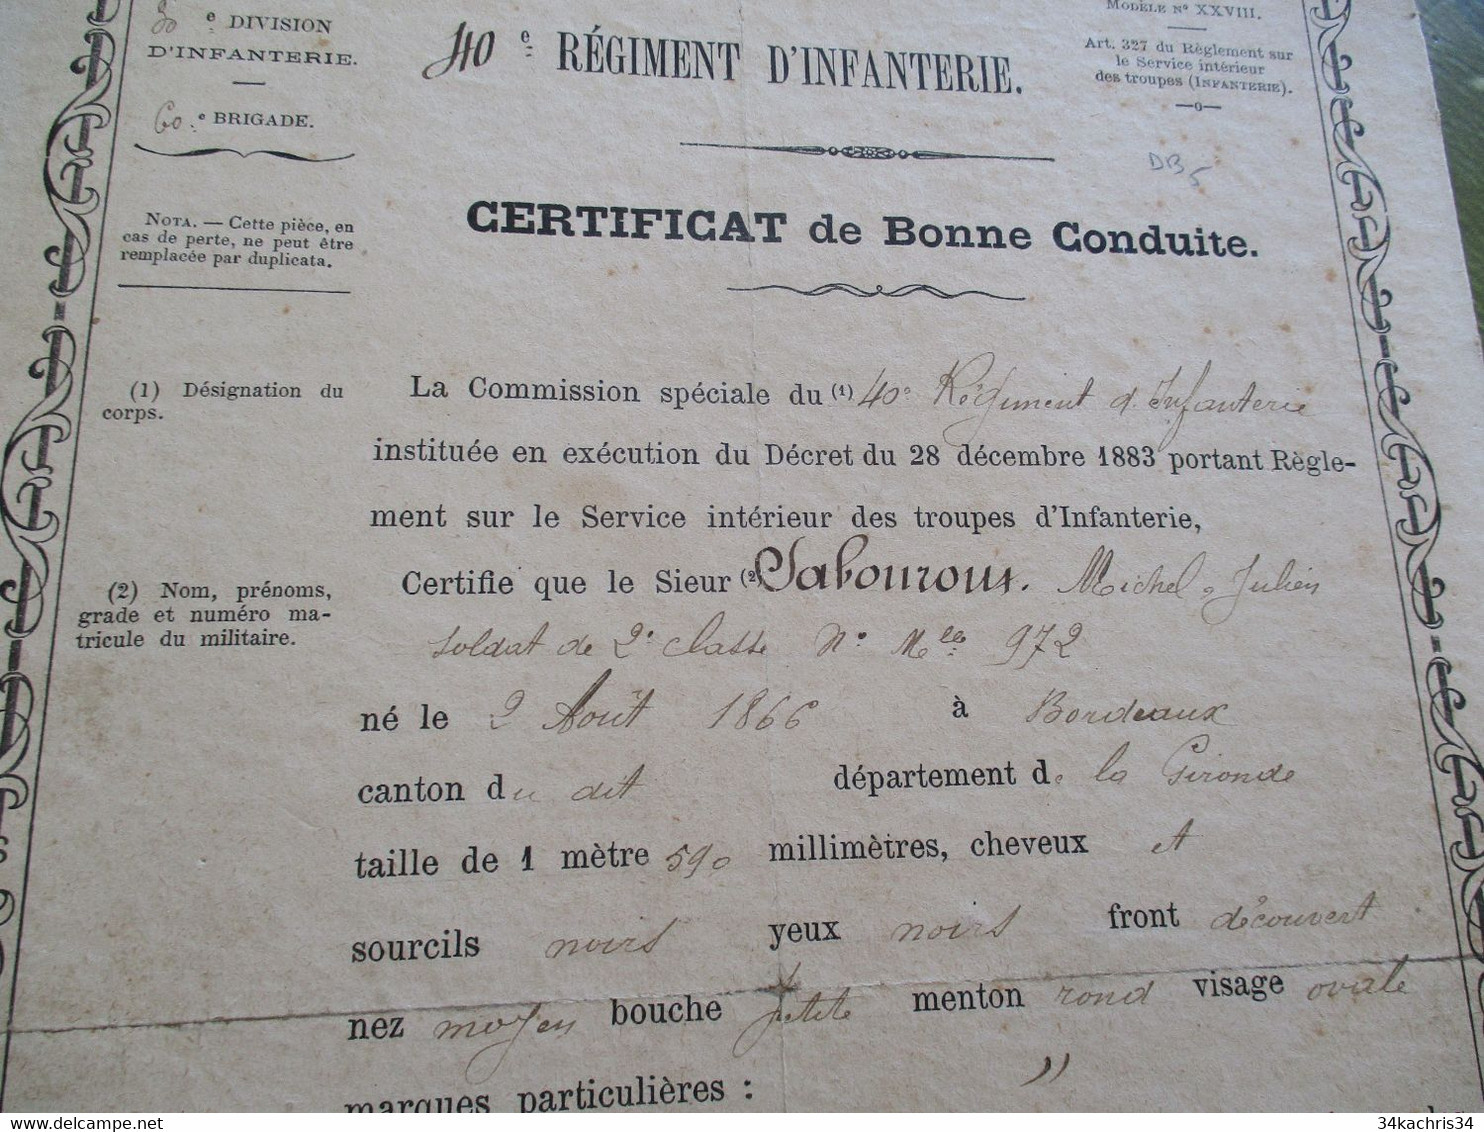 30e DIVISION
D'INFANTERIE.
60.e BRIGADE.
40e RÉGIMENT D'INFANTERIE.
MODÈLE No XXVIII.
Art. 327 du Règlement sur
le Service intérieur
des troupes (INFANTERIE).
DB5
NOTA. — Cette pièce, en
cas de perte, ne peut être
remplacée par duplicata.
CERTIFICAT de Bonne Conduite.
(1) Désignation du
corps.
La Commission spéciale du (1) 40e Régiment d'Infanterie
instituée en exécution du Décret du 28 décembre 1883 portant Règle-
ment sur le Service intérieur des troupes d'Infanterie,
(2) Nom, prénoms,
grade et numéro ma-
tricule du militaire.
Certifie que le Sieur (2) Sabouroux. Michel, Julien
soldat de 2e classe No Mle 972
né le 2 Août 1866 à Bordeaux
canton du dit département de la Gironde
taille de 1 mètre 590 millimètres, cheveux et
sourcils noirs yeux noirs front découvert
nez moyen bouche petite menton rond visage ovale
marques particulières : "
34kachris34